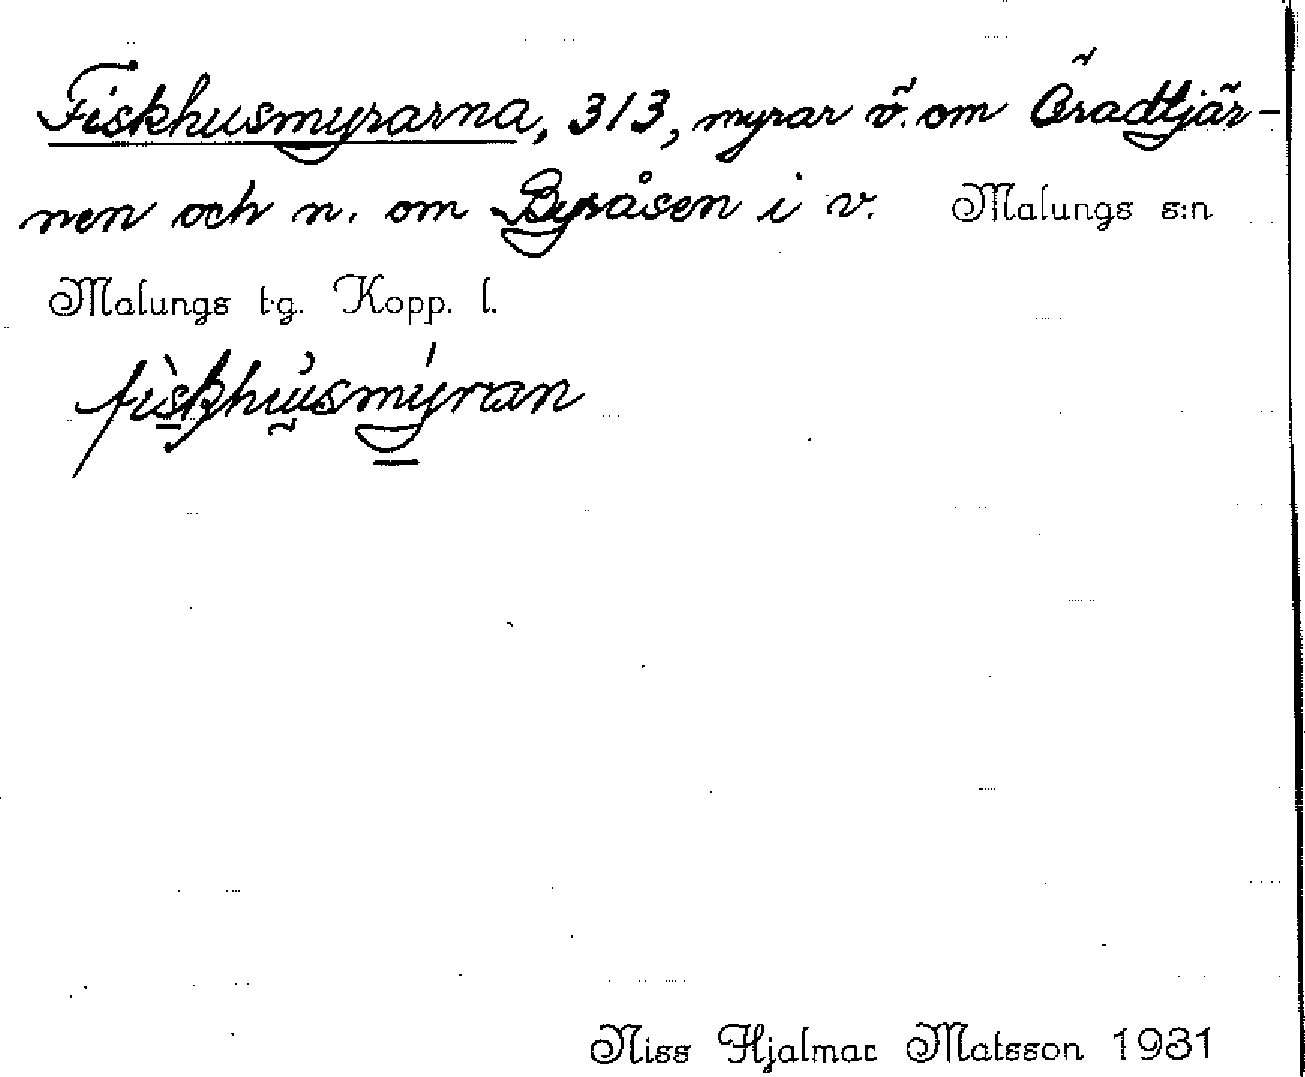 Fiskhusmyrarna, 313, myrar ö. om Öradtjär-
nen och n. om Byråsen i v. Malungs s:n
Malungs tg. Kopp. l.
fiskhusmyran
Niss Hjalmar Matsson 1931